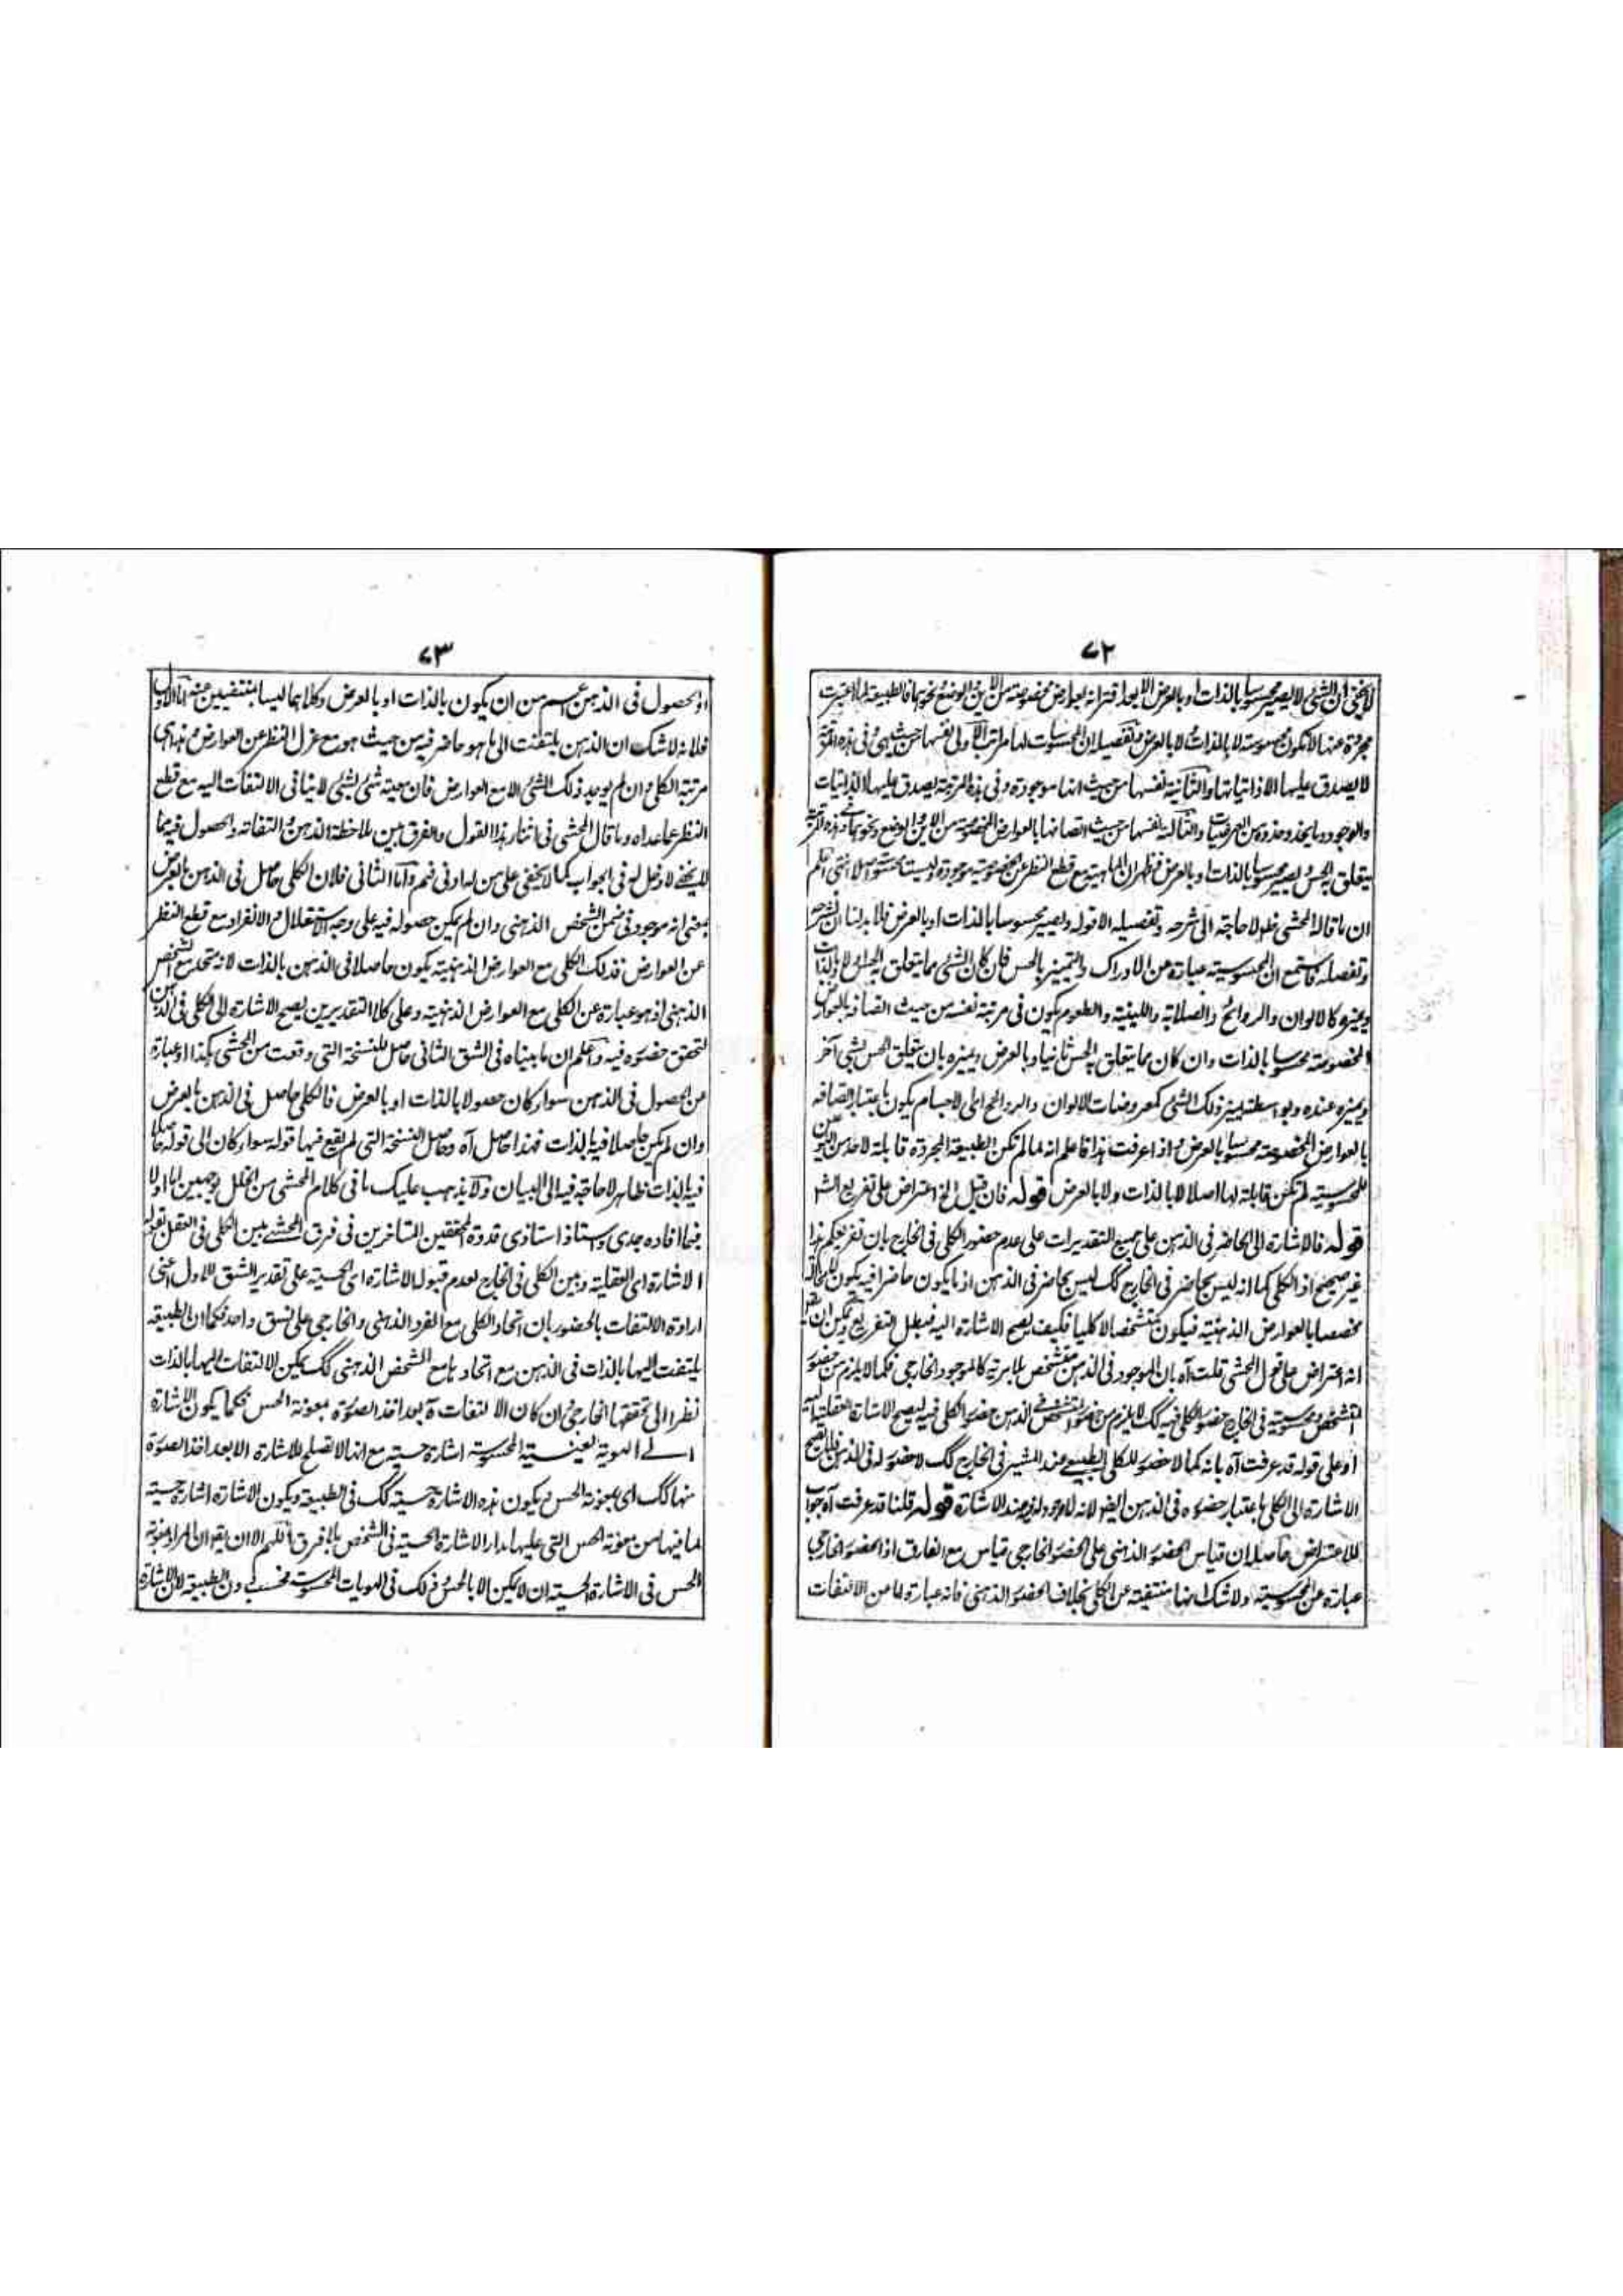 ٧٢
لا يخفى ان الشئ لا يصير محسوسا بالذات او بالعرض الا بعد اقترانه بعوارض مخصوصة من الاين والوضع ونحوهما فالطبيعة اذا اعتبرت
مجردة عنها لا تكون محسوسة لا بالذات ولا بالعرض وتفصيله ان المحسوسات لها مراتب الاولى نفسها من حيث هي وفى هذه المرتبة
لا يصدق عليها الا ذاتياتها والثانية نفسها من حيث انها موجودة وفى هذه المرتبة يصدق عليها الذاتيات
والوجود وما يحذو حذوه من العرضيات والثالثة نفسها من حيث اتصافها بالعوارض المخصوصة من الاين والوضع ونحوهما وفى هذه المرتبة
يتعلق به الحس ويصير محسوسا بالذات او بالعرض فظهر ان الماهية مع قطع النظر عن الخصوصية موجودة وليست محسوسة اصلا انتهى اعلم
ان ما قاله المحشى ظ لا حاجة الى شرحه وتفصيله الا قوله ويصير محسوسا بالذات او بالعرض فلا بد لنا ان نشرحه
ونفصله فاستمع ان المحسوسية عبارة عن الادراك والتمييز بالحس فان كان الشئ مما يتعلق به الحس اولا وبالذات
ويميزه كالالوان والروائح والصلابة واللينية والطعوم يكون فى مرتبة نفسه من حيث اتصافه بالعوارض
المخصوصة محسوسا بالذات وان كان مما يتعلق به الحس ثانيا وبالعرض ويميزه بان يتعلق الحس بشئ آخر
ويميزه عنده وبواسطته يميز ذلك الشئ كمعروضات الالوان والروائح اعلى الاجسام يكون باعتبار اتصافه
بالعوارض المخصوصة محسوسا بالعرض واذا عرفت هذا فاعلم انه لما لم تكن الطبيعة المجردة قابلة لاحد من النحوين
للمحسوسية لم تكن قابلة لها اصلا لا بالذات ولا بالعرض قوله فان قيل الخ اعتراض على تفريع الش
قوله فالاشارة الى الحاضر فى الذهن على جميع التقديرات على عدم حضور الكلى فى الخارج بان تفريعكم هذا
غير صحيح اذ الكلى كما انه ليس بحاضر فى الخارج كك ليس بحاضر فى الذهن اذ ما يكون حاضرا فيه يكون لا محالة
مخصصا بالعوارض الذهنية فيكون متشخصا لا كليا فكيف يصح الاشارة اليه فبطل التفريع ويمكن ان يقرر
انه اعتراض على قول المحشى قلت آه بان الموجود فى الذهن متشخص بلا مرية كالموجود الخارجى فكما لا يلزم من حضور
الشخص ومحسوسيته فى الخارج حضور الكلى فيه كك لا يلزم من حضور المتشخص فى الذهن حضور الكلى فيه ليصح الاشارة العقلية اليه
او على قوله قد عرفت آه بانه كما لا حضور للكلى الطبيعى عند المشير فى الخارج كك لا حضور له فى الذهن فلا تصح
الاشارة الى الكلى باعتبار حضوره فى الذهن ايضا لانه لا وجود له فيه عند الاشارة قوله قلنا قد عرفت آه جواب
للاعتراض حاصله ان قياس الحضور الذهنى على الحضور الخارجى قياس مع الفارق اذ الحضور الخارجى
عبارة عن المحسوسية ولا شك انها منتفية عن الكلى بخلاف الحضور الذهنى فانه عبارة اما عن الالتفات
٧٣
او الحصول فى الذهن اعم من ان يكون بالذات او بالعرض وكلاهما ليسا بمنتفيين عنه اما الاول
فلانه لا شك ان الذهن يلتفت الى ما هو حاضر فيه من حيث هو مع عزل النظر عن العوارض وهذه هى
مرتبة الكلى وان لم يوجد ذلك الشئ الا مع العوارض فان معية شئ بشئ لا ينافى الالتفات اليه مع قطع
النظر عما عداه وما قال المحشى فى اثناء هذا القول والفرق بين ملاحظة الذهن والتفاته والحصول فيه مما
لا يخفى لا دخل له فى الجواب كما لا يخفى على من له ادنى فهم واما الثانى فلان الكلى حاصل فى الذهن بالعرض
بمعنى انه موجود فى ضمن الشخص الذهنى وان لم يكن حصوله فيه على وجه الاستقلال والانفراد مع قطع النظر
عن العوارض فذلك الكلى مع العوارض الذهنية يكون حاصلا فى الذهن بالذات لانه متحد مع الشخص
الذهنى اذ هو عبارة عن الكلى مع العوارض الذهنية وعلى كلا التقديرين يصح الاشارة الى الكلى فى الذهن
لتحقق حضوره فيه واعلم ان ما بيناه فى الشق الثانى حاصل للنسخة التى وقعت من المحشى هكذا او عبارة
عن الحصول فى الذهن سواء كان حصولا بالذات او بالعرض فالكلى حاصل فى الذهن بالعرض
وان لم يكن حاصلا فيه بالذات فهذا حاصل آه وحاصل النسخة التى لم يقع فيها قوله سواء كان الى قوله حاصلا
فيه بالذات ظاهر لا حاجة فيه الى البيان ولا يذهب عليك ما فى كلام المحشى من الخلل بوجهين اما اولا
فبما افاده جدى واستاذ استاذى قدوة المحققين المتأخرين فى فرق المحشى بين الكلى فى العقل بقبوله
الاشارة اى العقلية وبين الكلى فى الخارج بعدم قبوله الاشارة اى الحسية على تقدير الشق الاول اعنى
ارادة الالتفات بالحضور بان اتحاد الكلى مع الفرد الذهنى والخارجى على نسق واحد فكما ان الطبيعة
يلتفت اليها بالذات فى الذهن مع اتحادها مع الشخص الذهنى كك يمكن الالتفات اليها بالذات
نظرا الى تحققها الخارجى وان كان الالتفات آه بعد اخذ الصورة بمعونة الحس فكما يكون الاشارة
الى الهوية العينية المحسوسة اشارة حسية مع انها لا تصلح للاشارة الا بعد اخذ الصورة
منها كك اى بمعونة الحس ويكون هذه الاشارة حسية كك فى الطبيعة ويكون الاشارة اشارة حسية
لما فيها من معونة الحس التى عليها مدار الاشارة الحسية فى الشخص بلا فرق اللهم الا ان يقال ان المراد بمعونة
الحس فى الاشارة الحسية ان لا يمكن الا بالحس وذلك فى الهويات المحسوسة فحسب دون الطبيعة لان الاشارة